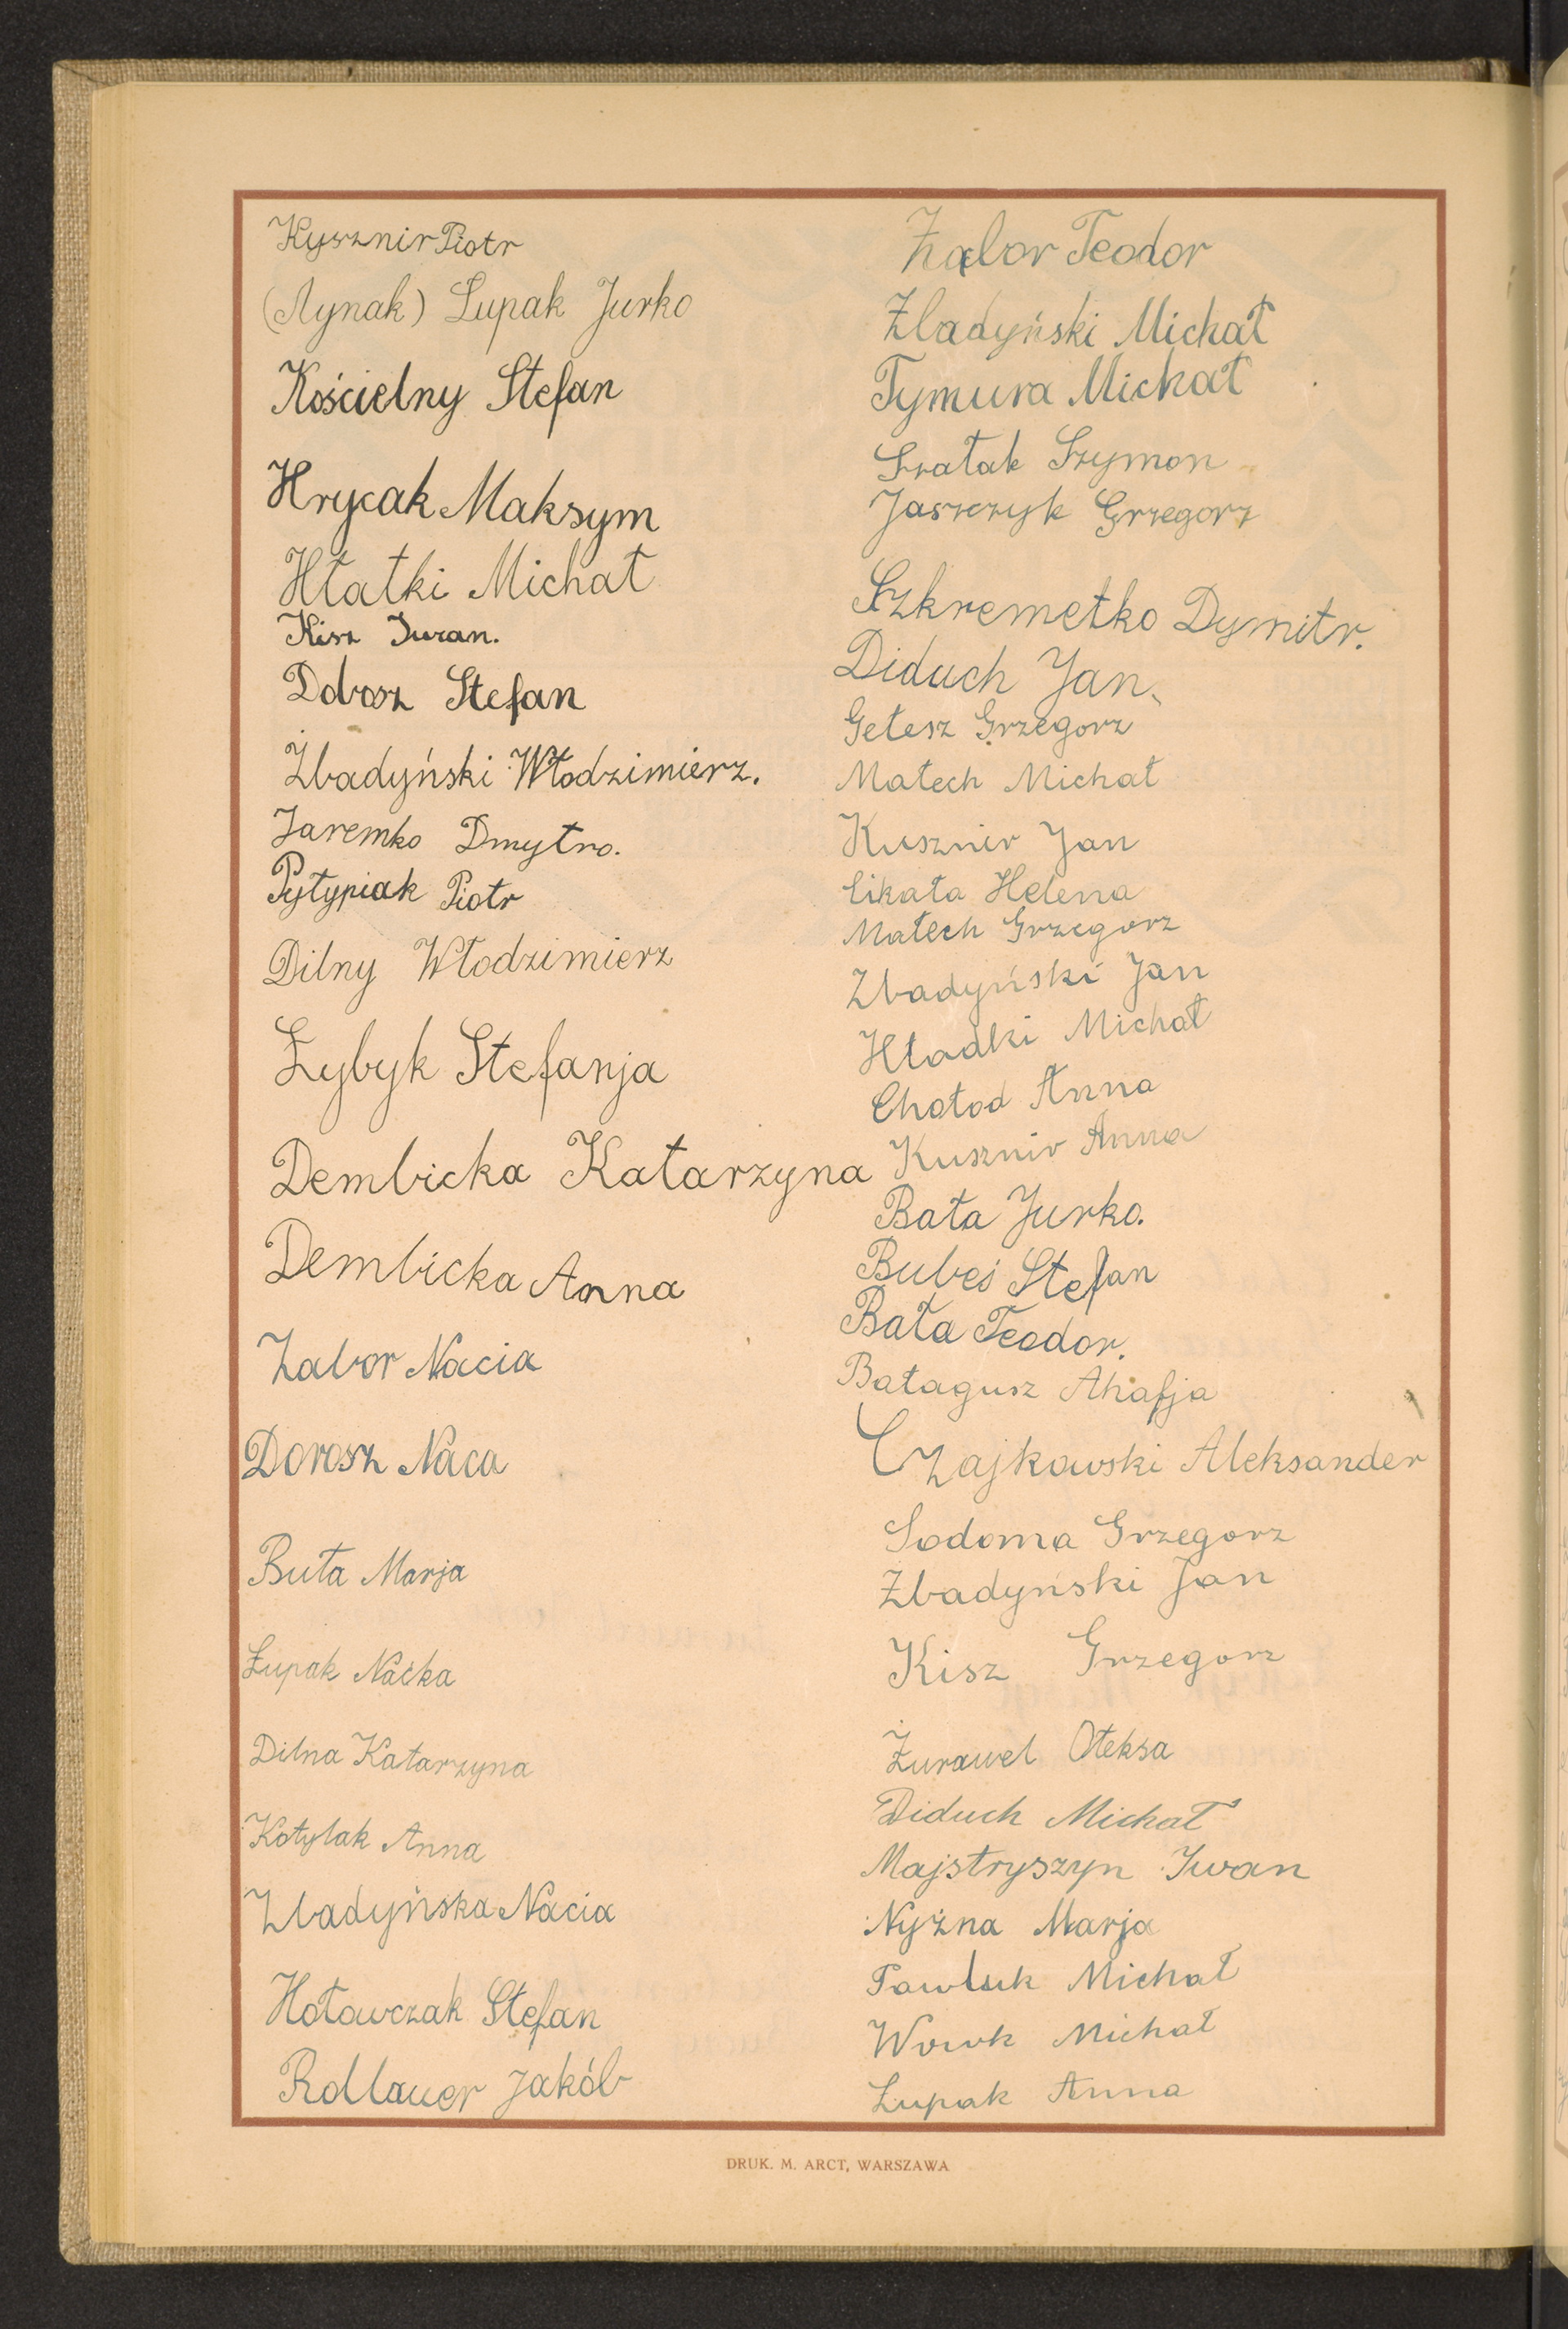 Kysznir Piotr
(Лупак) Łupak Jurko
Kościelny Stefan
Hrycak Maksym
Hłatki Michał
Kisz Iwan.
Dorosz Stefan
Żbadyński Włodzimierz.
Jaremko Dmytro.
Pyłypiak Piotr
Dilny Włodzimierz
Łybyk Stefanja
Dembicka Katarzyna
Dembicka Anna
Zabor Nacia
Dorosz Naca
Buta Marja
Łupak Naćka
Dilna Katarzyna
Kotylak Anna
Zbadyńska Nacia
Hoławczak Stefan
Rollauer Jakób
Żabor Teodor
Zbadyński Michał
Tymura Michał
Szałak Szymon
Jaszczyk Grzegorz
Szkremetko Dymitr.
Diduch Jan.
Gełesz Grzegorz
Małech Michał
Kusznir Jan
Cikała Helena
Małech Grzegorz
Zbadyński Jan
Hładki Michał
Chołod Anna
Kusznir Anna
Bała Jurko.
Bubeś Stefan
Bała Teodor.
Bałagusz Ahafja
Czajkowski Aleksander
Sodoma Grzegorz
Zbadyński Jan
Kisz Grzegorz
Żurawel Ołeksa
Diduch Michał
Majstryszyn Iwan
Nyżna Marja
Pawluk Michał
Wowk Michał
Łupak Anna
DRUK. M. ARCT, WARSZAWA